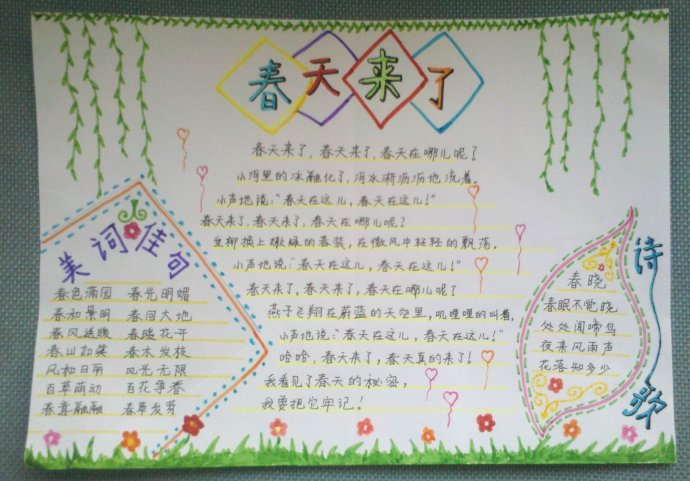 春天来了
春天来了，春天来了，春天在哪儿呢？
小河里的冰融化了，河水淅沥沥地流着，
小声地说：“春天在这儿，春天在这儿！”
春天来了，春天来了，春天在哪儿呢？
垂柳换上嫩绿的春装，在微风中轻轻的飘荡。
小声地说：“春天在这儿，春天在这儿！”
春天来了，春天来了，春天在哪儿呢？
燕子飞翔在蔚蓝的天空里，叽哩哩的叫着，
小声地说：“春天在这儿，春天在这儿！”
哈哈，春天来了，春天真的来了！
我看见了春天的秘密，
我要把它牢记！
美词佳句
春色满园 春光明媚
春和景明 春回大地
春风送暖 春暖花开
春山如笑 春木发枝
风和日丽 风光无限
百草萌动 百花争春
春意融融 春草发芽
诗歌
春晓
春眠不觉晓
处处闻啼鸟
夜来风雨声
花落知多少